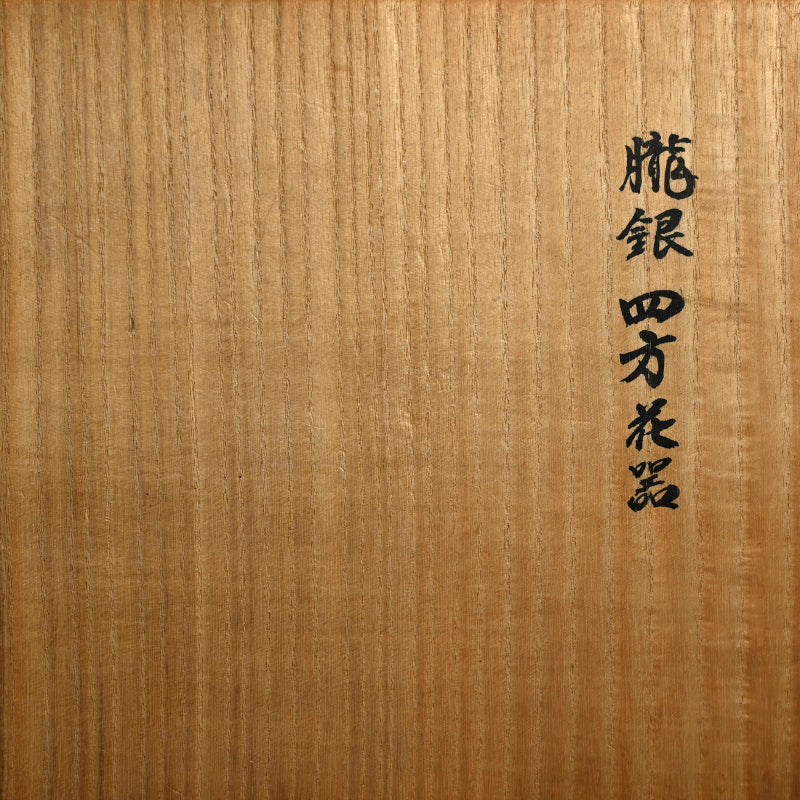 朧銀四方花器